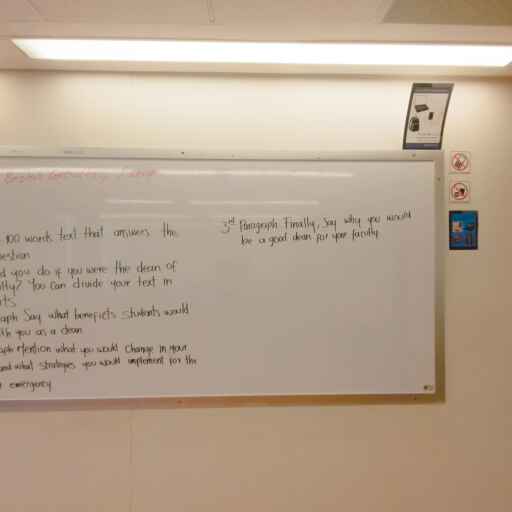 100 words text that answers the
estion
d you do if you were the dean of
lty? You can divide your text in
ts
aph Say what benefits students would
th you as a dean
aph Mention what you would change in your
and what strategies you would implement for the
emergency
3rd Paragraph Finally, Say why you would
be a good dean for your faculty